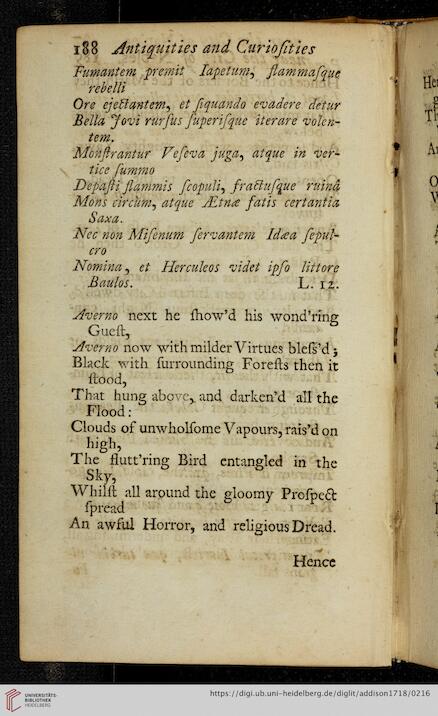 188 Antiquities and Curioſities
Fumantem premit Iapetum, flammaſque
rebelli
Ore ejectantem, et ſiquando evadere detur
Bella Jovi rurſus ſuperiſque iterare volen-
tem.
Monſtrantur Veſeva juga, atque in ver-
tice ſummo
Depaſti flammis ſcopuli, fractuſque ruinâ
Mons circùm, atque Ætnæ fatis certantia
Saxa.
Nec non Miſenum ſervantem Idæa ſepul-
cro
Nomina, et Herculeos videt ipſo littore
Baulos. L. 12.
Averno next he ſhow'd his wond'ring
Gueſt,
Averno now with milder Virtues bleſs'd;
Black with ſurrounding Foreſts then it
ſtood,
That hung above, and darken'd all the
Flood:
Clouds of unwholſome Vapours, rais'd on
high,
The flutt'ring Bird entangled in the
Sky,
Whilſt all around the gloomy Proſpect
ſpread
An awful Horror, and religious Dread.
Hence
UNIVERSITÄTS-
BIBLIOTHEK
HEIDELBERG
https://digi.ub.uni-heidelberg.de/diglit/addison1718/0216